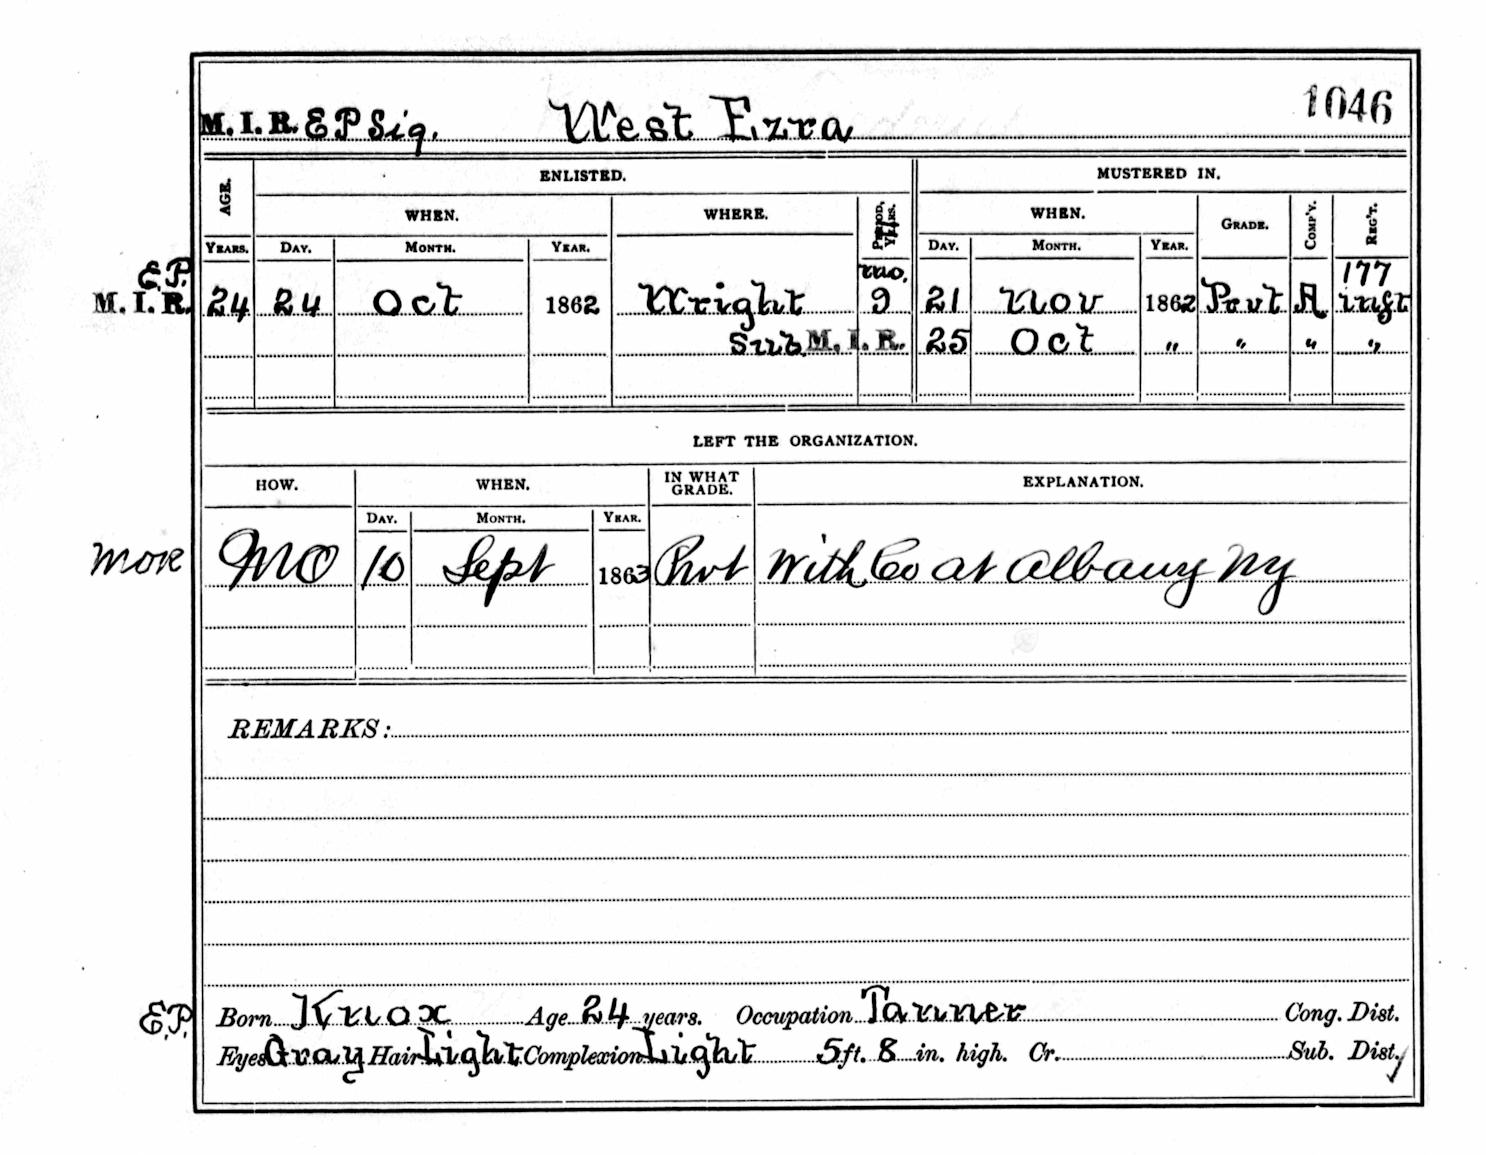 M. I. R. E P Sig. West Ezra 1046
AGE. ENLISTED. MUSTERED IN.
WHEN. WHERE. PERIOD, YEARS. WHEN. GRADE. COMP'Y. REG'T.
YEARS. DAY. MONTH. YEAR. DAY. MONTH. YEAR.
E.P. mo. 177
M. I. R. 24 24 Oct 1862 Wright 9 21 Nov 1862 Pvut A inft
Sub. M. I. R. 25 Oct " " " "
LEFT THE ORGANIZATION.
HOW. WHEN. IN WHAT GRADE. EXPLANATION.
DAY. MONTH. YEAR.
MOR MO 10 Sept 1863 Pvt With Co at Albany NY
REMARKS:
E.P. Born Knox Age 24 years. Occupation Tanner Cong. Dist.
Eyes Gray Hair Light Complexion Light 5 ft. 8 in. high. Cr. Sub. Dist.